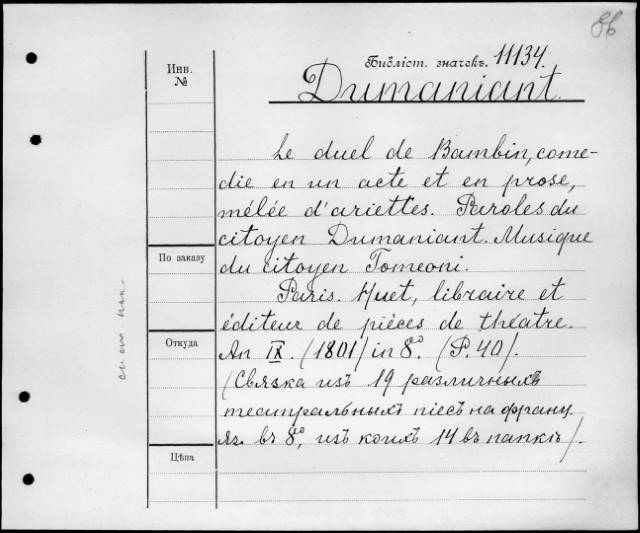 86
Библіот. значекъ. 11134.
Инв.
№
Dumaniant.
Le duel de Bambin, come-
die en un acte et en prose,
mélée d'ariettes. Paroles du
citoyen Dumaniant. Musique
du citoyen Tomeoni.
По заказу
Paris. Huet, libraire et
éditeur de pièces de théatre.
Откуда
An IX. (1801) in 8.º (P. 40).
(Связка изъ 19 различныхъ
театральныхъ піесъ на франц.
яз. въ 8º, изъ коихъ 14 въ папкѣ).
Цѣна